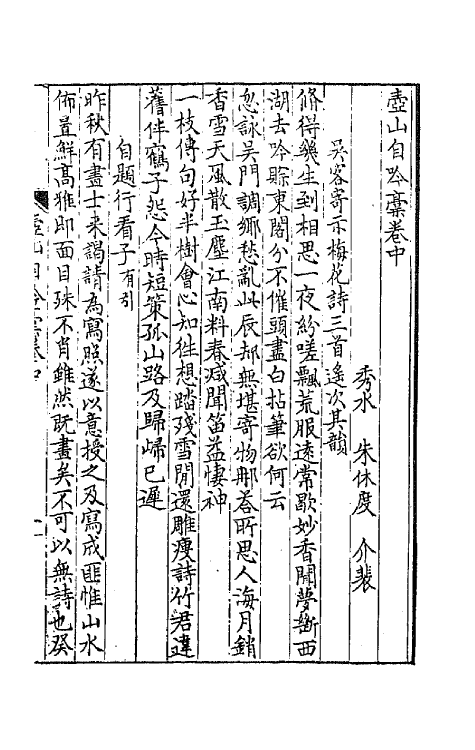 壺山自吟稾卷中
秀水　朱休度　介裴
吳客寄示梅花詩三首遙次其韻
脩得幾生到相思一夜紛嗟飄荒服遠常歇妙香聞夢斷西
湖去吟賒東閣分不催頭盡白拈筆欲何云
忽詠吳門調鄉愁亂此辰却無堪寄物那荅所思人海月銷
香雪天風散玉塵江南料春減聞笛益悽神
一枝傳句好半樹會心知徃想踏殘雪閒還雕瘦詩竹君違
舊伴鶴子怨今時短策孤山路及歸歸已遲
自題行看子有引
昨秋有畫士來謁請為寫照遂以意授之及寫成匪惟山水
佈置鮮髙雅即面目殊不肖雖然既畫矣不可以無詩也癸
壺山自吟稾卷中